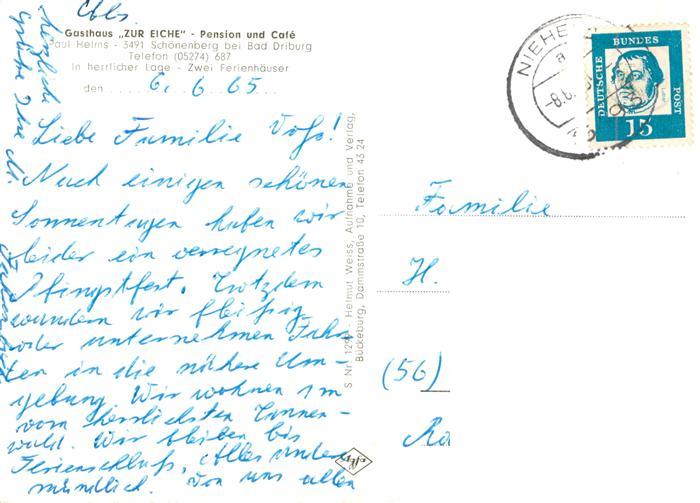 Abs.
Gasthaus „ZUR EICHE" - Pension und Café
Paul Helms - 3491 Schönenberg bei Bad Driburg
Telefon (05274) 687
In herrlicher Lage - Zwei Ferienhäuser
den 6. 6. 65
Liebe Familie Voß!
Nach einigen schönen
Sonnentagen haben wir
leider ein verregnetes
Pfingstfest. Trotzdem
wandern wir fleißig
oder unternehmen Fahr-
ten in die nähere Um-
gebung. Wir wohnen 1 m
vom herrlichsten Tannen-
wald. Wir bleiben bis
Ferienschluß. Alles andere
mündlich. Von uns allen
herzliche
Grüße Ihre
S Nr. Helmut Weiss, Aufnahme und Verlag,
Bückeburg, Dammstraße 10, Telefon 43 24
NIEHE
-8.6.
DEUTSCHE BUNDES POST
15
Familie
H.
(56)
Ra